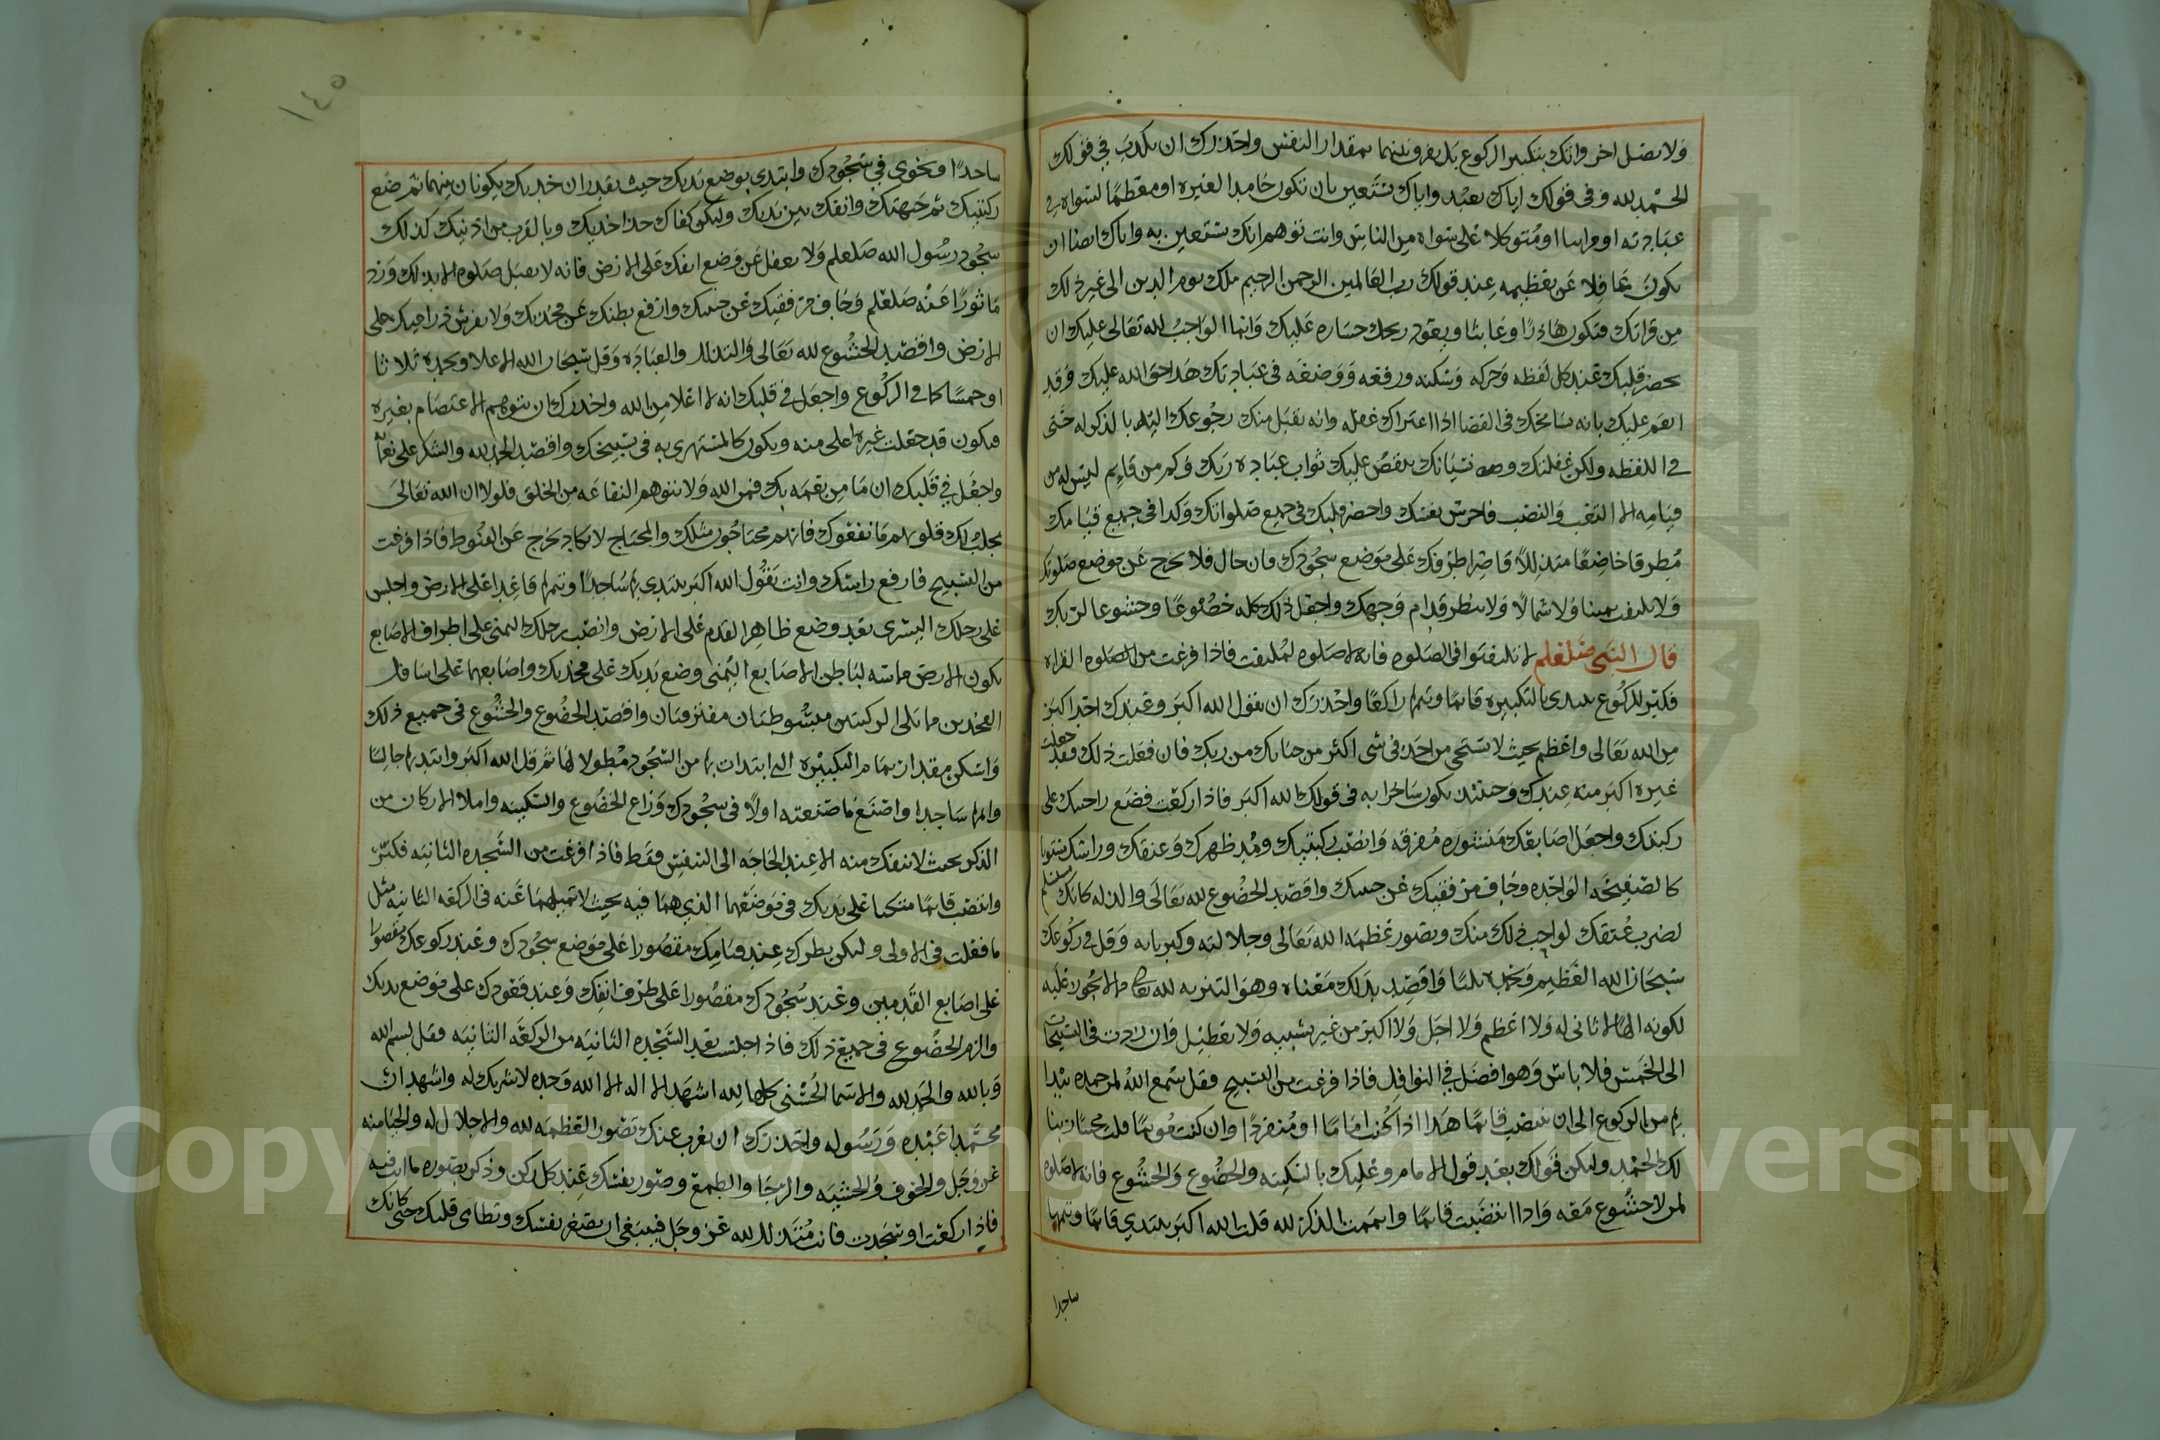 ولا تصل اخر قراتك بتكبير الركوع بل يفرق بينهما بمقدار النفس واحذرك ان تكذب في قولك
الحمد لله وفي قولك اياك نعبد واياك نستعين بان تكون حامدا لغيره او معظما لسواه في
عبادته او مرايا او متوكلا على سواه من الناس وانت توهم انك تستعين به واياك ايضا ان
تكون غافلا عن تعظيمه عند قولك رب العالمين الرحمن الرحيم ملك يوم الدين الى غير ذلك
من قراتك فتكون هاذرا وعابثا ويعود ربحك خساره عليك وانما الواجب لله تعالى عليك ان
تحضر قلبك عند كل لفظه وحركه وسكنه ورفعه ووضعه في عبادتك هذا حق الله عليك وقد
انعم عليك بانه يسامحك في القضا اذا اعتراك غفله وانه يقبل منك رجوعك اليه بالذكر له حتى
في اللفظه ولكن غفلتك ونسيانك ينقص عليك ثواب عبادة ربك وكم من قايم ليس له من
قيامه الا التعب والنصب فاحرس نفسك واحضر قلبك في جميع صلواتك وكذا في جميع قيامك
مطرقا خاضعا متذللا قاصرا طرفك على موضع سجودك فان حال فلا يخرج عن موضع صلوتك
ولا تلتفت يمينا ولا شمالا ولا تنظر قدام وجهك واجعل ذلك كله خضوعا وخشوعا لربك
قال النبي صلعلم لا تلتفتوا في الصلوه فانه لا صلوه لملتفت فاذا فرغت من القراه
فكبر للركوع تبتدى بالتكبيره قايما وتتمها راكعا واحذرك ان تقول الله اكبر وعندك احد اكبر
من الله تعالى واعظم بحيث لا تستحي من احد في شي اكثر من حيايك من ربك فان فعلت ذلك فقد جعلت
غيره اكبر منه عندك وحينئذ تكون ساخرا به في قولك الله اكبر فاذا ركعت فضع راحتيك على
ركبتيك واجعل اصابعك منشوره مفرقه وانصب ركبتيك ومد ظهرك وعنقك وراسك مستويا
كالصفيحه الواحده وجاف مرفقيك عن جنبيك واقصد الخضوع لله تعالى والذله كانك مستسلم
لضرب عنقك لواجب ذلك منك وتصور عظمه الله تعالى وجلالته وكبريايه وقل في ركوعك
سبحان الله العظيم وبحمده ثلثا واقصد بذلك معناه وهو التنزيه لله عما لا يجوز عليه
لكونه الها لا ثاني له ولا اعظم ولا اجل ولا اكبر من غير تشبيه ولا تعطيل وان زدت في التسبيحات
الى الخمس فلا باس وهو افضل في النوافل فاذا فرغت من التسبيح فقل سمع الله لمن حمده تبدا
بها من الركوع الى ان تنتصب قايما هذا اذا كنت اماما او منفردا وان كنت موتما قلت مجيبا ربنا
لك الحمد وليكن قولك بعد قول الامام وعليك بالسكينه والخضوع والخشوع فانه لا صلوه
لمن لا خشوع معه واذا انتصبت قايما واتممت الذكر لله قلت الله اكبر تبتدي قايما وتتمها
ساجدا
١٤٥
ساجدا وتخوى في سجودك وابتدي بوضع يديك حيث يقدر ان خديك يكونان بينهما ثم ضع
ركبتيك ثم جبهتك وانفك بين يديك وليكن كفاك حذا خديك وبالقرب من اذنيك كذلك
سجود رسول الله صلعلم ولا تغفل عن وضع انفك على الارض فانه لا تقبل صلوه الا بذلك ورد
ماثورا عنه صلعلم وجاف مرفقيك عن جنبيك وارفع بطنك عن فخذيك ولا تفرش ذراعيك على
الارض واقصد الخشوع لله تعالى والتذلل والعباده وقل سبحان الله الاعلا وبحمده ثلاثا
او خمسا كما في الركوع واجعل في قلبك انه لا اعلا من الله واحذرك ان تتوهم الاعتصام بغيره
فتكون قد جعلت غيره اعلى منه وتكون كالمستهزي به في تسبيحك واقصد الحمد لله والشكر على نعمايه
واجعل في قلبك ان ما من نعمه بك فمن الله ولا تتوهم النفاعه من الخلق فلولا ان الله تعالى
يجلب لك قلوبهم ما نفعوك فانهم محتاجون مثلك والمحتاج لا يكاد يخرج عن القنوط فاذا فرغت
من التسبيح فارفع راسك وانت تقول الله اكبر تبتدى بها ساجدا وتتمها قاعدا على الارض واجلس
على رجلك اليسرى بعد وضع ظاهر القدم على الارض وانصب رجلك اليمنى على اطراف الاصابع
تكون الارض ماسه لباطن الاصابع اليمنى وضع يديك على فخذيك واصابعهما على اسافل
الفخذين مما يلى الركبتين مبسوطتان مفترقتان واقصد الخضوع والخشوع في جميع ذلك
واسكن مقدار تمام التكبيره التي ابتدات بها من السجود مطولا لها ثم قل الله اكبر وابتد بها جالسا
واتمها ساجدا واصنع ما صنعته اولا في سجودك وراع الخضوع والسكينه واملا الاركان من
الذكر بحيث لا تنفك منه الا عند الحاجه الى التنفس فقط فاذا فرغت من السجده الثانيه فكبر
وانتصب قايما متكيا على يديك في موضعهما الذي هما فيه بحيث لا تميلهما عنه في الركعه الثانيه مثل
ما فعلت في الاولى وليكن نظرك عند قيامك مقصورا على موضع سجودك وعند ركوعك مقصورا
على اصابع القدمين وعند سجودك مقصورا على طرف انفك وعند قعودك على موضع يديك
والزم الخضوع في جميع ذلك فاذا جلست بعد السجده الثانيه من الركعه الثانيه فقل بسم الله
وبالله والحمد لله والاسما الحسنى كلها لله اشهد الا اله الا الله وحده لا شريك له واشهد ان
محمدا عبده ورسوله واحذرك ان يغرب عنك تصور العظمه لله والاجلال له والحيا منه
عز وجل والخوف والخشيه والرجا والطمع وصور نفسك عند كل ركن وذكر بصوره ما انت فيه
فاذا ركعت او سجدت فانت متذلل لله عز وجل فينبغي ان تصغر نفسك وتطاى قلبك حتى كانك
Copyright © King Saud University